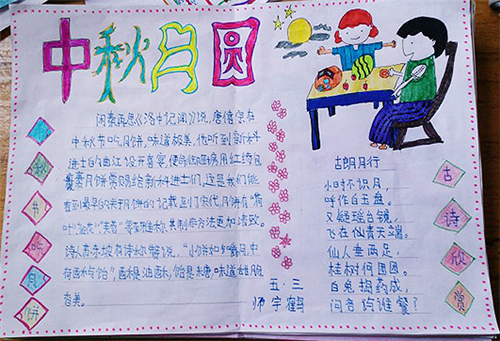 中秋月圆
阅袁再思《洛中记闻》说,唐僖宗在
中秋节吃月饼,味道极美,他听到新科
进士的曲江设开喜宴,便命御厨房用红绫包
裹月饼赏赐给新科进士们,这是我们能
看到最早的关于月饼的记载到了宋代,月饼有"荷
叶""金花""芙蓉"等雅称,其制作方法更加精致。
诗人苏东坡有诗称赞说,"小饼如嚼月,中
有酥和饴",酥是油酥,饴是糖,味道甜脆
香美。
五·三
师宇鹤
秋
节
吃
月
饼
古朗月行
小时不识月,
呼作白玉盘。
又疑瑶台镜,
飞在仙青云端。
仙人垂两足,
桂树何团团。
白兔捣药成,
问言与谁餐?
古
诗
欣
赏